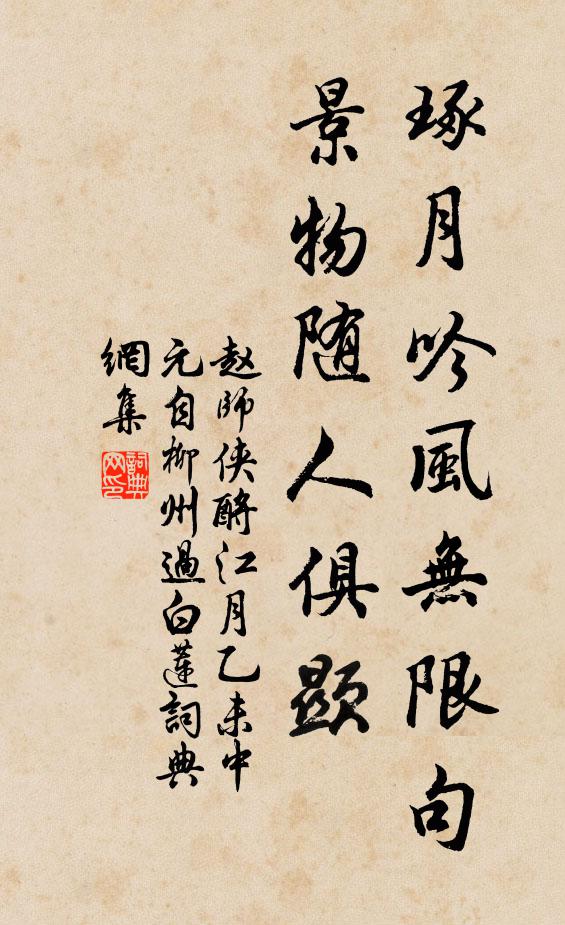 琢月吟風無限句
景物随人俱顕
赵師侠酹江月乙未中
元自柳州過白蓮詞典
網集
詞典網印